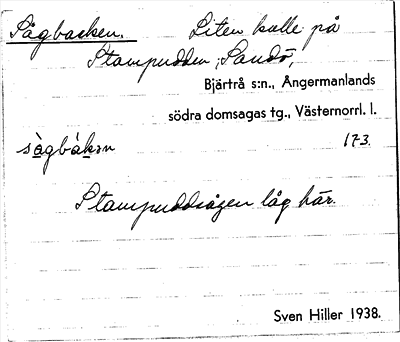 Sågbacken. Liten kulle på
Stampudden, Sandö,
Bjärtrå s:n., Ångermanlands
södra domsagas tg., Västernorrl. l.
173.
Stampuddsågen låg här.
Sven Hiller 1938.